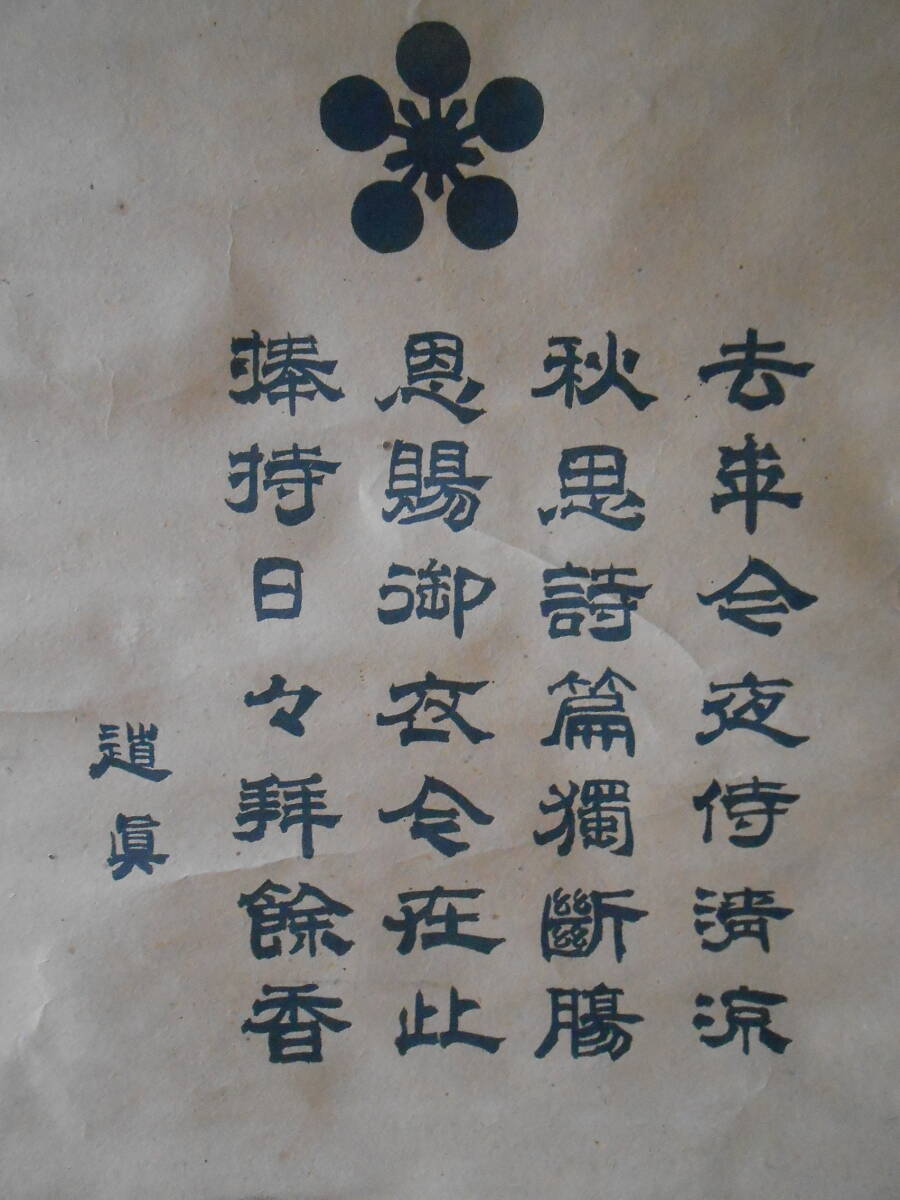 去年今夜侍清涼
秋思詩篇獨斷腸
恩賜御衣今在此
捧持日々拜餘香
道眞